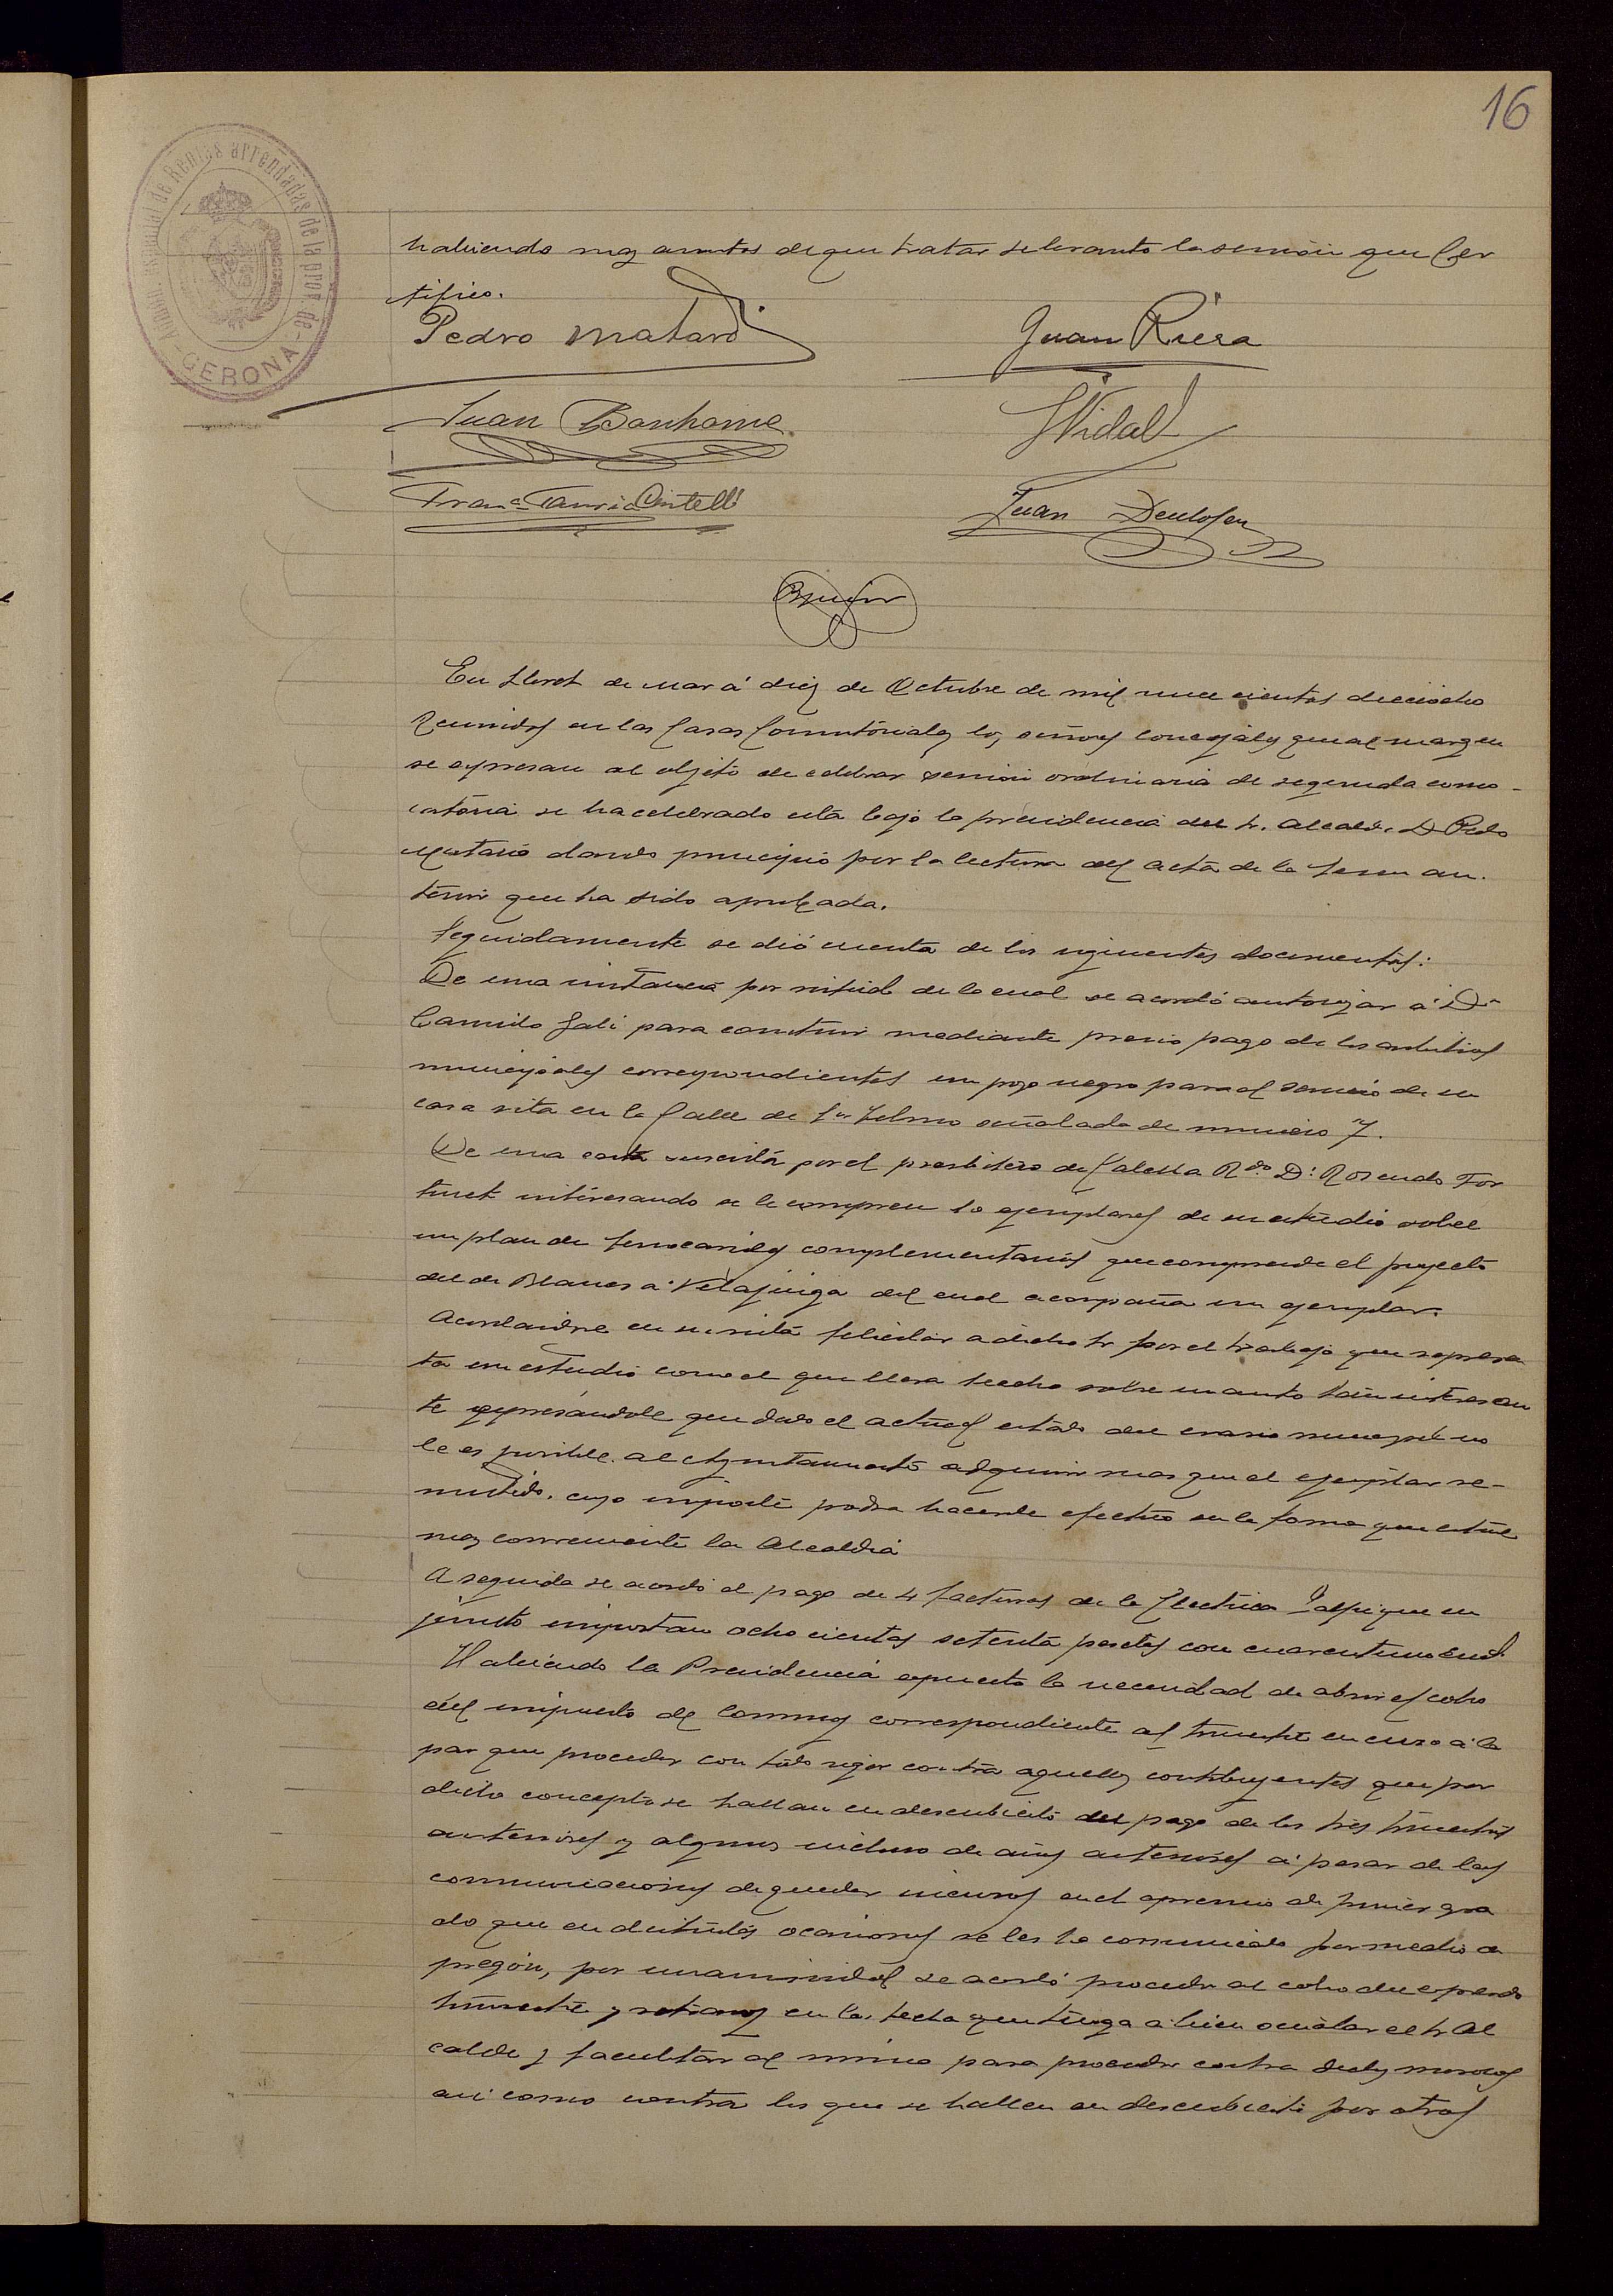 16
Admón. especial de Rentas arrendadas de la prov. de
GERONA
habiendo mas asuntos de que tratar se levanto la sesión que Cer
tifico.
Pedro Mataró
Juan Riera
Juan Bonhome
J Vidal
Franco Tauria Cintelli
Juan Deulofeu
En Lloret de mar á diez de Octubre de mil nuevecientos dieciocho
Reunidos en las Casas Consistoriales los señores concejales que al margen
se expresan al objeto de celebrar sesión ordinaria de segunda convo-
catoria se ha celebrado esta bajo la presidencia del Sr. Alcalde D Pedro
Mataró dando principio por la lectura del acta de la sesion an-
terior que ha sido aprobada.
Seguidamente se dió cuenta de los siguientes documentos:
De una instancia por virtud de la cual se acordó autorizar á Dn
Camilo Galí para construir mediante previo pago de los arbitrios
municipales correspondientes un pozo negro para el servicio de su
casa sita en la Calle de Sn Telmo señalada de numero 7.
De una carta suscrita por el presbitero de Calella Rdo D. Rosendo For
tunet interesando se le compren 10 ejemplares de su estudio sobre
un plan de ferrocarriles complementarios que comprende el proyecto
del de Blanes a Vilajuiga del cual acompaña un ejemplar.
Acordandose en su vista felicitar a dicho Sr por el trabajo que represen
ta un estudio como el que lleva hecho sobre un asunto tan interesan
te expresándole que dado el actual estado del erario municipal no
le es posible al Ayuntamiento adquirir mas que el ejemplar re-
mitido, cuyo importe podra hacerse efectivo en la forma que estime
mas conveniente la Alcaldia
A seguida se acordó el pago de 4 facturas de la Electrica que en
junto importan ochocientas setenta pesetas con cuarentiun cent.
Habiendo la Presidencia expuesto la necesidad de abrir el cobro
del impuesto de Consumos correspondiente al trimestre en curso a la
par que proceder con todo rigor contra aquellos contribuyentes que por
dicho concepto se hallan en descubierto del pago de los tres trimestres
anteriores y algunos incluso de años anteriores á pesar de las
comunicaciones de quedar incursos en el apremio de primer gra
do que en distintas ocasiones se les ha comunicado por medio de
pregón, por unanimidad se acordó proceder al cobro del expresado
trimestre y retrasos en la fecha que tenga a bien señalar el Sr Al
calde y facultar al mismo para proceder contra dichos morosos
asi como contra los que se hallen en descubierto por otros